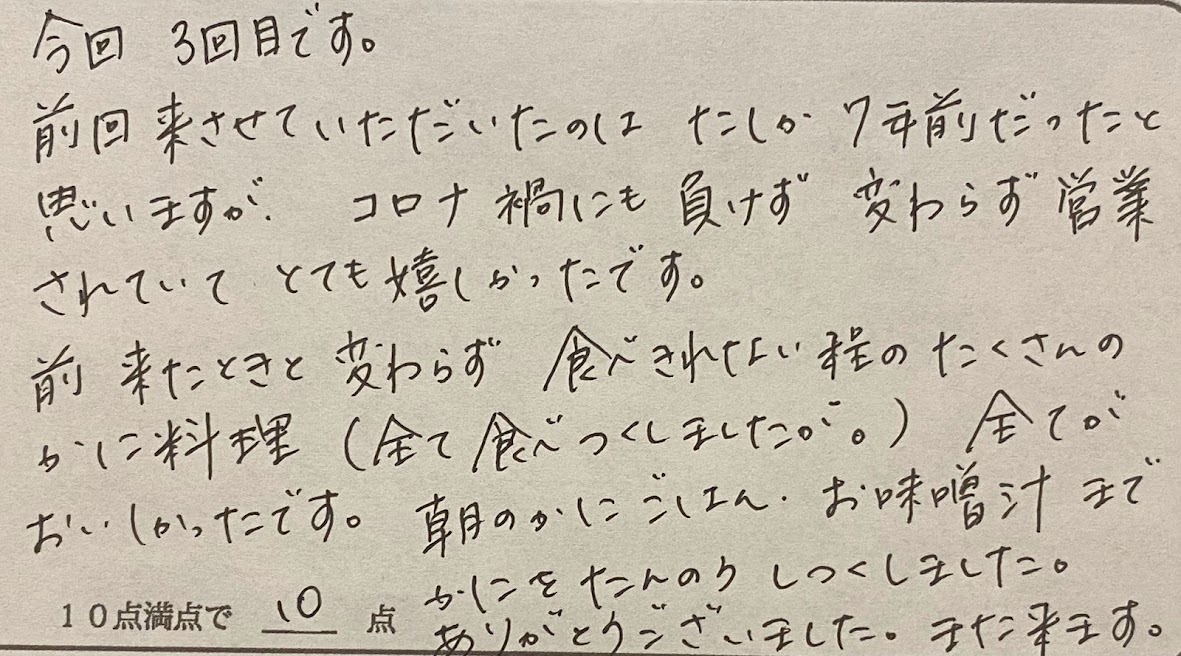 今回 3回目です。
前回来させていただいたのは たしか 7年前だったと
思いますが、 コロナ禍にも 負けず 変わらず営業
されていて とても嬉しかったです。
前 来たときと 変わらず 食べきれない程の たくさんの
かに料理 (全て食べつくしましたが。) 全てが
おいしかったです。 朝のかにごはん、お味噌汁 まで
かにをたんのうしつくしました。
ありがとうございました。また来ます。
10点満点で 10 点